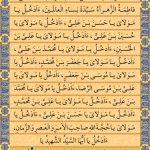 فَاطِمَةُ الزَّهْرَاءُ سَيِّدَةَ نِسَاءِ الْعَالَمِينَ، ءَاَدْخُلُ يَا
مَوْلَايَ يَا حَسَنَ بْنَ عَلِيٍّ، ءَاَدْخُلُ يَا مَوْلَايَ يَا
حُسَيْنَ بْنَ عَلِيٍّ، ءَاَدْخُلُ يَا مَوْلَايَ يَا عَلِيَّ بْنَ
الْحُسَيْنِ، ءَاَدْخُلُ يَا مَوْلَايَ يَا مُحَمَّدَ بْنَ عَلِيٍّ،
ءَاَدْخُلُ يَا مَوْلَايَ يَا جَعْفَرَ بْنَ مُحَمَّدٍ، ءَاَدْخُلُ يَا
مَوْلَايَ يَا مُوسَى بْنَ جَعْفَرٍ، ءَاَدْخُلُ يَا مَوْلَايَ يَا
عَلِيَّ بْنَ مُوسَى الرِّضَا، ءَاَدْخُلُ يَا مَوْلَايَ يَا مُحَمَّدَ
بْنَ عَلِيٍّ، ءَاَدْخُلُ يَا مَوْلَايَ يَا عَلِيَّ بْنَ مُحَمَّدٍ،
ءَاَدْخُلُ يَا مَوْلَايَ يَا حَسَنَ بْنَ عَلِيٍّ، ءَاَدْخُلُ يَا
مَوْلَايَ يَا حُجَّةَ اللهِ صَاحِبَ الْأَمْرِ وَالْعَصْرِ وَالزَّمَانِ،
ءَاَدْخُلُ يَا أَيُّهَا السَّيِّدُ الشَّهِيدُ يَا